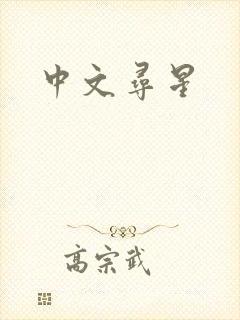 中文尋星
高宗武